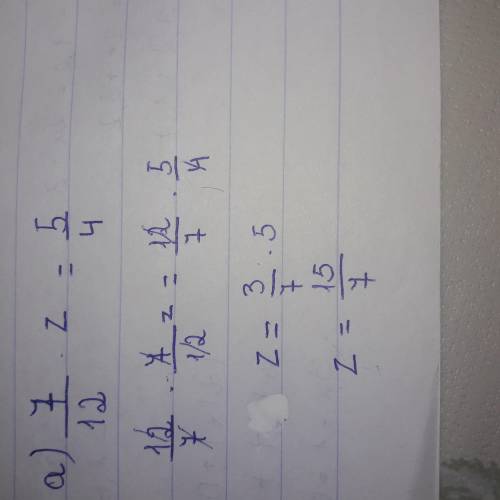 а) 7/12 · z = 5/4
12/7 · 7/12 z = 12/7 · 5/4
z = 3/7 · 5
z = 15/7